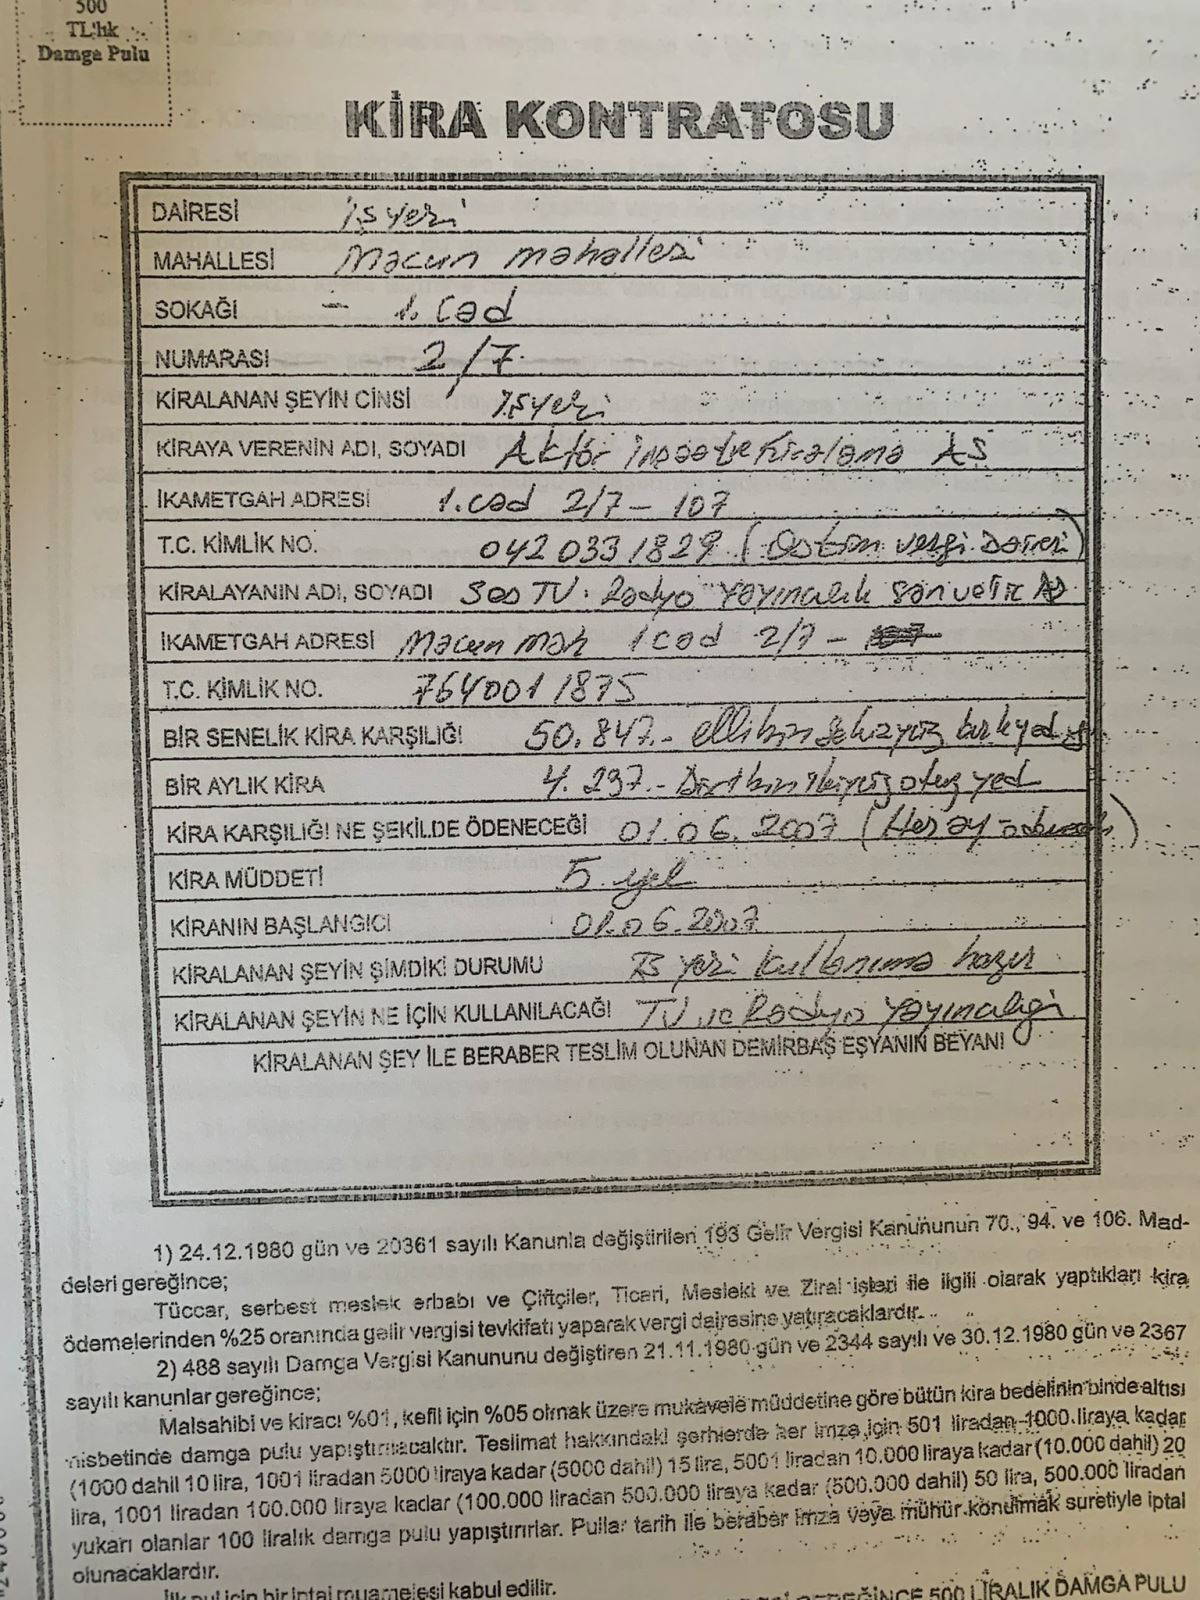 500
TL'lık
Damga Pulu
KİRA KONTRATOSU
DAİRESİ İşyeri
MAHALLESİ Macun mahallesi
SOKAĞI - 1. Cad
NUMARASI 2/7
KİRALANAN ŞEYİN CİNSİ İşyeri
KİRAYA VERENİN ADI, SOYADI Aktör İnşaat ve Kiralama AŞ
İKAMETGAH ADRESİ 1. Cad 2/7 - 107
T.C. KİMLİK NO. 042 033 1829 (Ostim vergi Dairesi)
KİRALAYANIN ADI, SOYADI Ses TV. Radyo Yayıncılık AŞ
İKAMETGAH ADRESİ Macun Mah 1 Cad 2/7 -
T.C. KİMLİK NO. 764001 1875
BİR SENELİK KİRA KARŞILIĞI 50.847.- ellibin sekizyüz kırkyedi
BİR AYLIK KİRA 4.237.- Dörtbin ikiyüz otuz yedi
KİRA KARŞILIĞI NE ŞEKİLDE ÖDENECEĞİ 01.06.2007 (Her ay
KİRA MÜDDETİ 5 yıl
KİRANIN BAŞLANGICI 01.06.2007
KİRALANAN ŞEYİN ŞİMDİKİ DURUMU İş yeri kullanıma hazır
KİRALANAN ŞEYİN NE İÇİN KULLANILACAĞI TV ve Radyo Yayıncılığı
KİRALANAN ŞEY İLE BERABER TESLİM OLUNAN DEMİRBAŞ EŞYANIN BEYANI
1) 24.12.1980 gün ve 20361 sayılı Kanunla değiştirilen 193 Gelir Vergisi Kanununun 70., 94. ve 106. Mad-
deleri gereğince;
Tüccar, serbest meslek erbabı ve Çiftçiler, Ticari, Mesleki ve Zirai işleri ile ilgili olarak yaptıkları kira
ödemelerinden %25 oranında gelir vergisi tevkifatı yaparak vergi dairesine yatıracaklardır.
2) 488 sayılı Damga Vergisi Kanununu değiştiren 21.11.1980 gün ve 2344 sayılı ve 30.12.1980 gün ve 2367
sayılı kanunlar gereğince;
Malsahibi ve kiracı %01, kefil için %05 olmak üzere mukavele müddetine göre bütün kira bedelinin bindealtısı
nisbetinde damga pulu yapıştırılacaktır. Teslimat hakkındaki şerhlerde her imza için 501 liradan 1000 liraya kadar
(1000 dahil 10 lira, 1001 liradan 5000 liraya kadar (5000 dahil) 15 lira, 5001 liradan 10.000 liraya kadar (10.000 dahil) 20
lira, 1001 liradan 100.000 liraya kadar (100.000 liradan 500.000 liraya kadar (500.000 dahil) 50 lira, 500.000 liradan
yukarı olanlar 100 liralık damga pulu yapıştırırlar. Pullar tarih ile beraber imza veya mühür konulmak suretiyle iptal
olunacaklardır.
İlk pul için bir iptal muamelesi kabul edilir.
GEREĞİNCE 500 LİRALIK DAMGA PULU